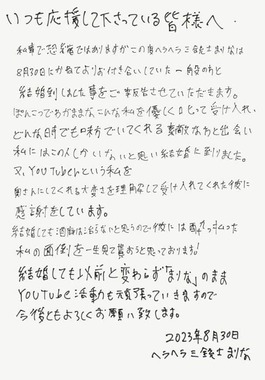 いつも応援して下さっている皆様へ.
私事で恐縮ではありますがこの度ヘラヘラ三銃士まりなは
8月30日にかねてよりお付き合いしていた一般の方と
結婚致しました事をご報告させていただきます。
ぽんこつでわがままな、こんな私を優しく叱って受け入れ、
どんな時でも味方でいてくれる素敵な方と出会い
私にはこの人しかいないと思い結婚に至りました。
又、YouTuberという私を
奥さんにしてくれる大変さを理解して受け入れてくれた彼に
感謝をしています。
結婚しても酒癖は治らないと思うので彼には酔っ払った
私の面倒を一生見て貰おうと思っております!
結婚しても以前と変わらず「まりな」のまま
YouTube活動も頑張っていきますので
今後ともよろしくお願い致します。
2023年8月30日
ヘラヘラ三銃士まりな